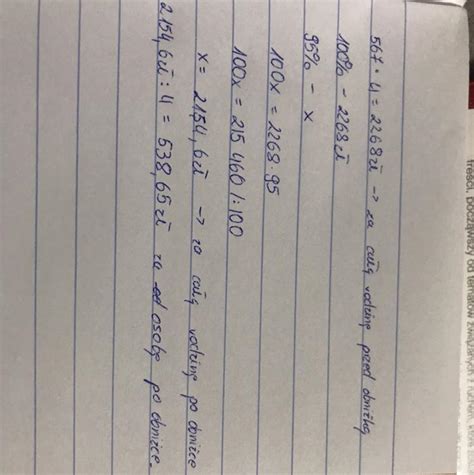 567 · 4 = 2268 zł → za całą rodzinę przed obniżką
100% - 2268 zł
95% - x
100x = 2268 · 95
100x = 215 460 /: 100
x = 2154,6 zł → za całą rodzinę po obniżce
2154,6 zł : 4 = 538,65 zł za osobę po obniżce.
treści, począwszy od tematów związanych z